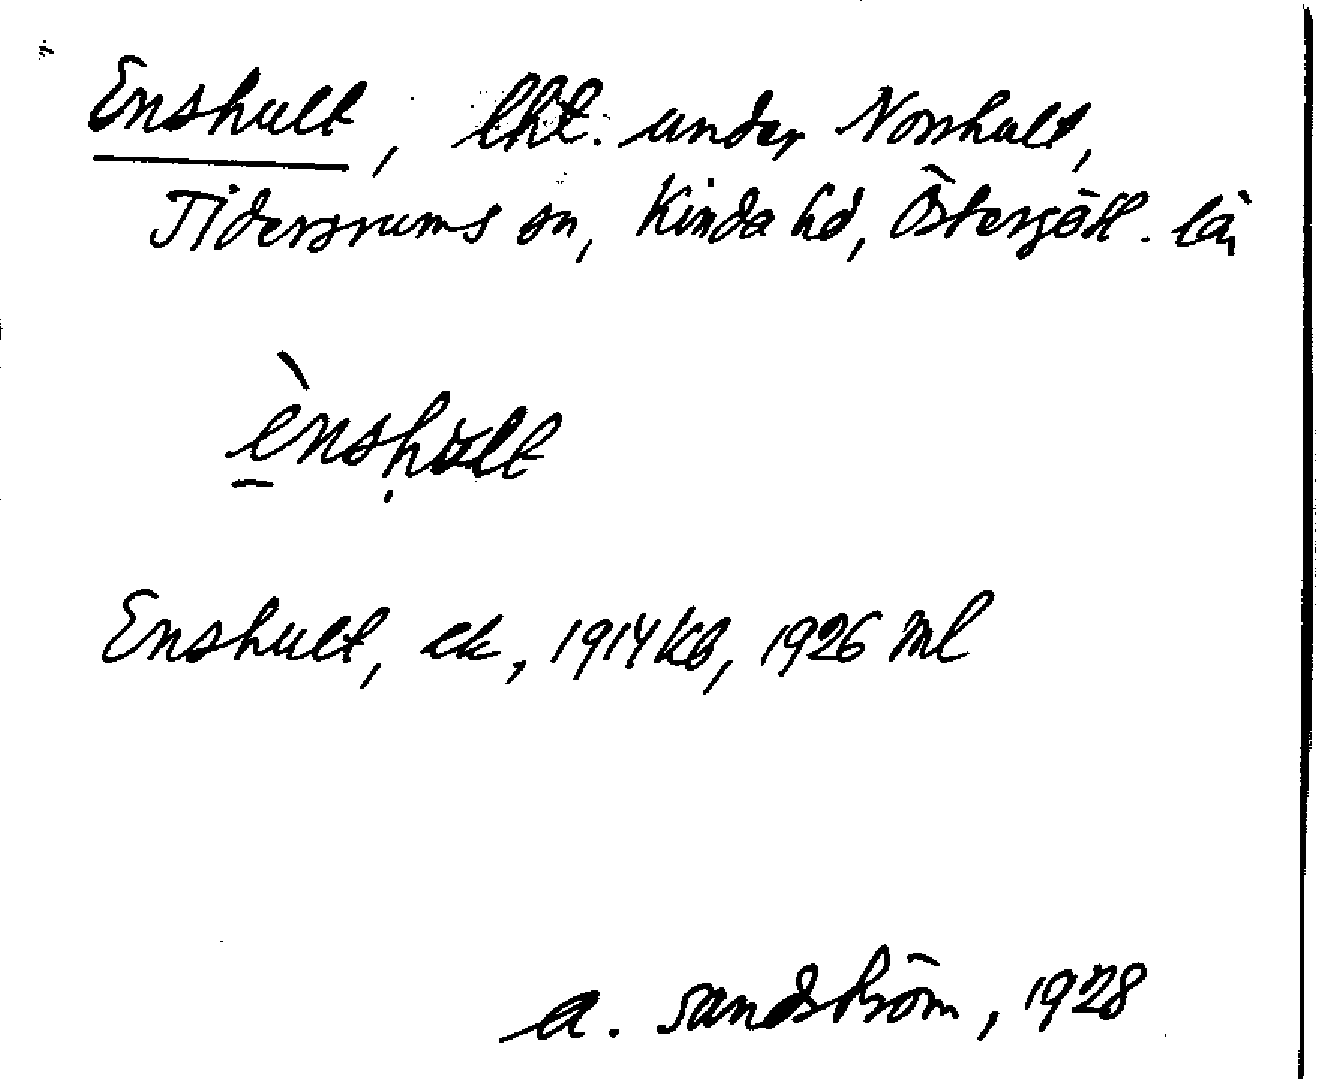 Enshult, lht. under Norrhult,
Tidersrums sn, Kinda hd, Östergötl. län
ènshult
Enshult, ek, 1914 kb, 1926 ml
A. Sandström, 1928